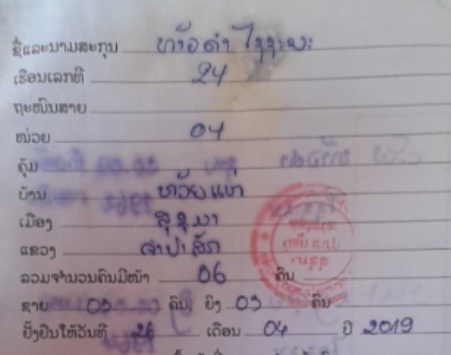 ຊື່ແລະນາມສະກຸນ ທ້າວຄຳ ໄຊຊະນະ
ເຮືອນເລກທີ 24
ຖະໜົນສາຍ
ໜ່ວຍ 04
ຄຸ້ມ
ບ້ານ ຫ້ວຍແຫ້
ເມືອງ ສຸຂຸມາ
ແຂວງ ຈຳປາສັກ
ລວມຈຳນວນຄົນມີໜ້າ 06 ຄົນ
ຊາຍ 03 ຄົນ, ຍິງ 03 ຄົນ
ຢັ້ງຢືນໃຫ້ວັນທີ 26 ເດືອນ 04 ປີ 2019